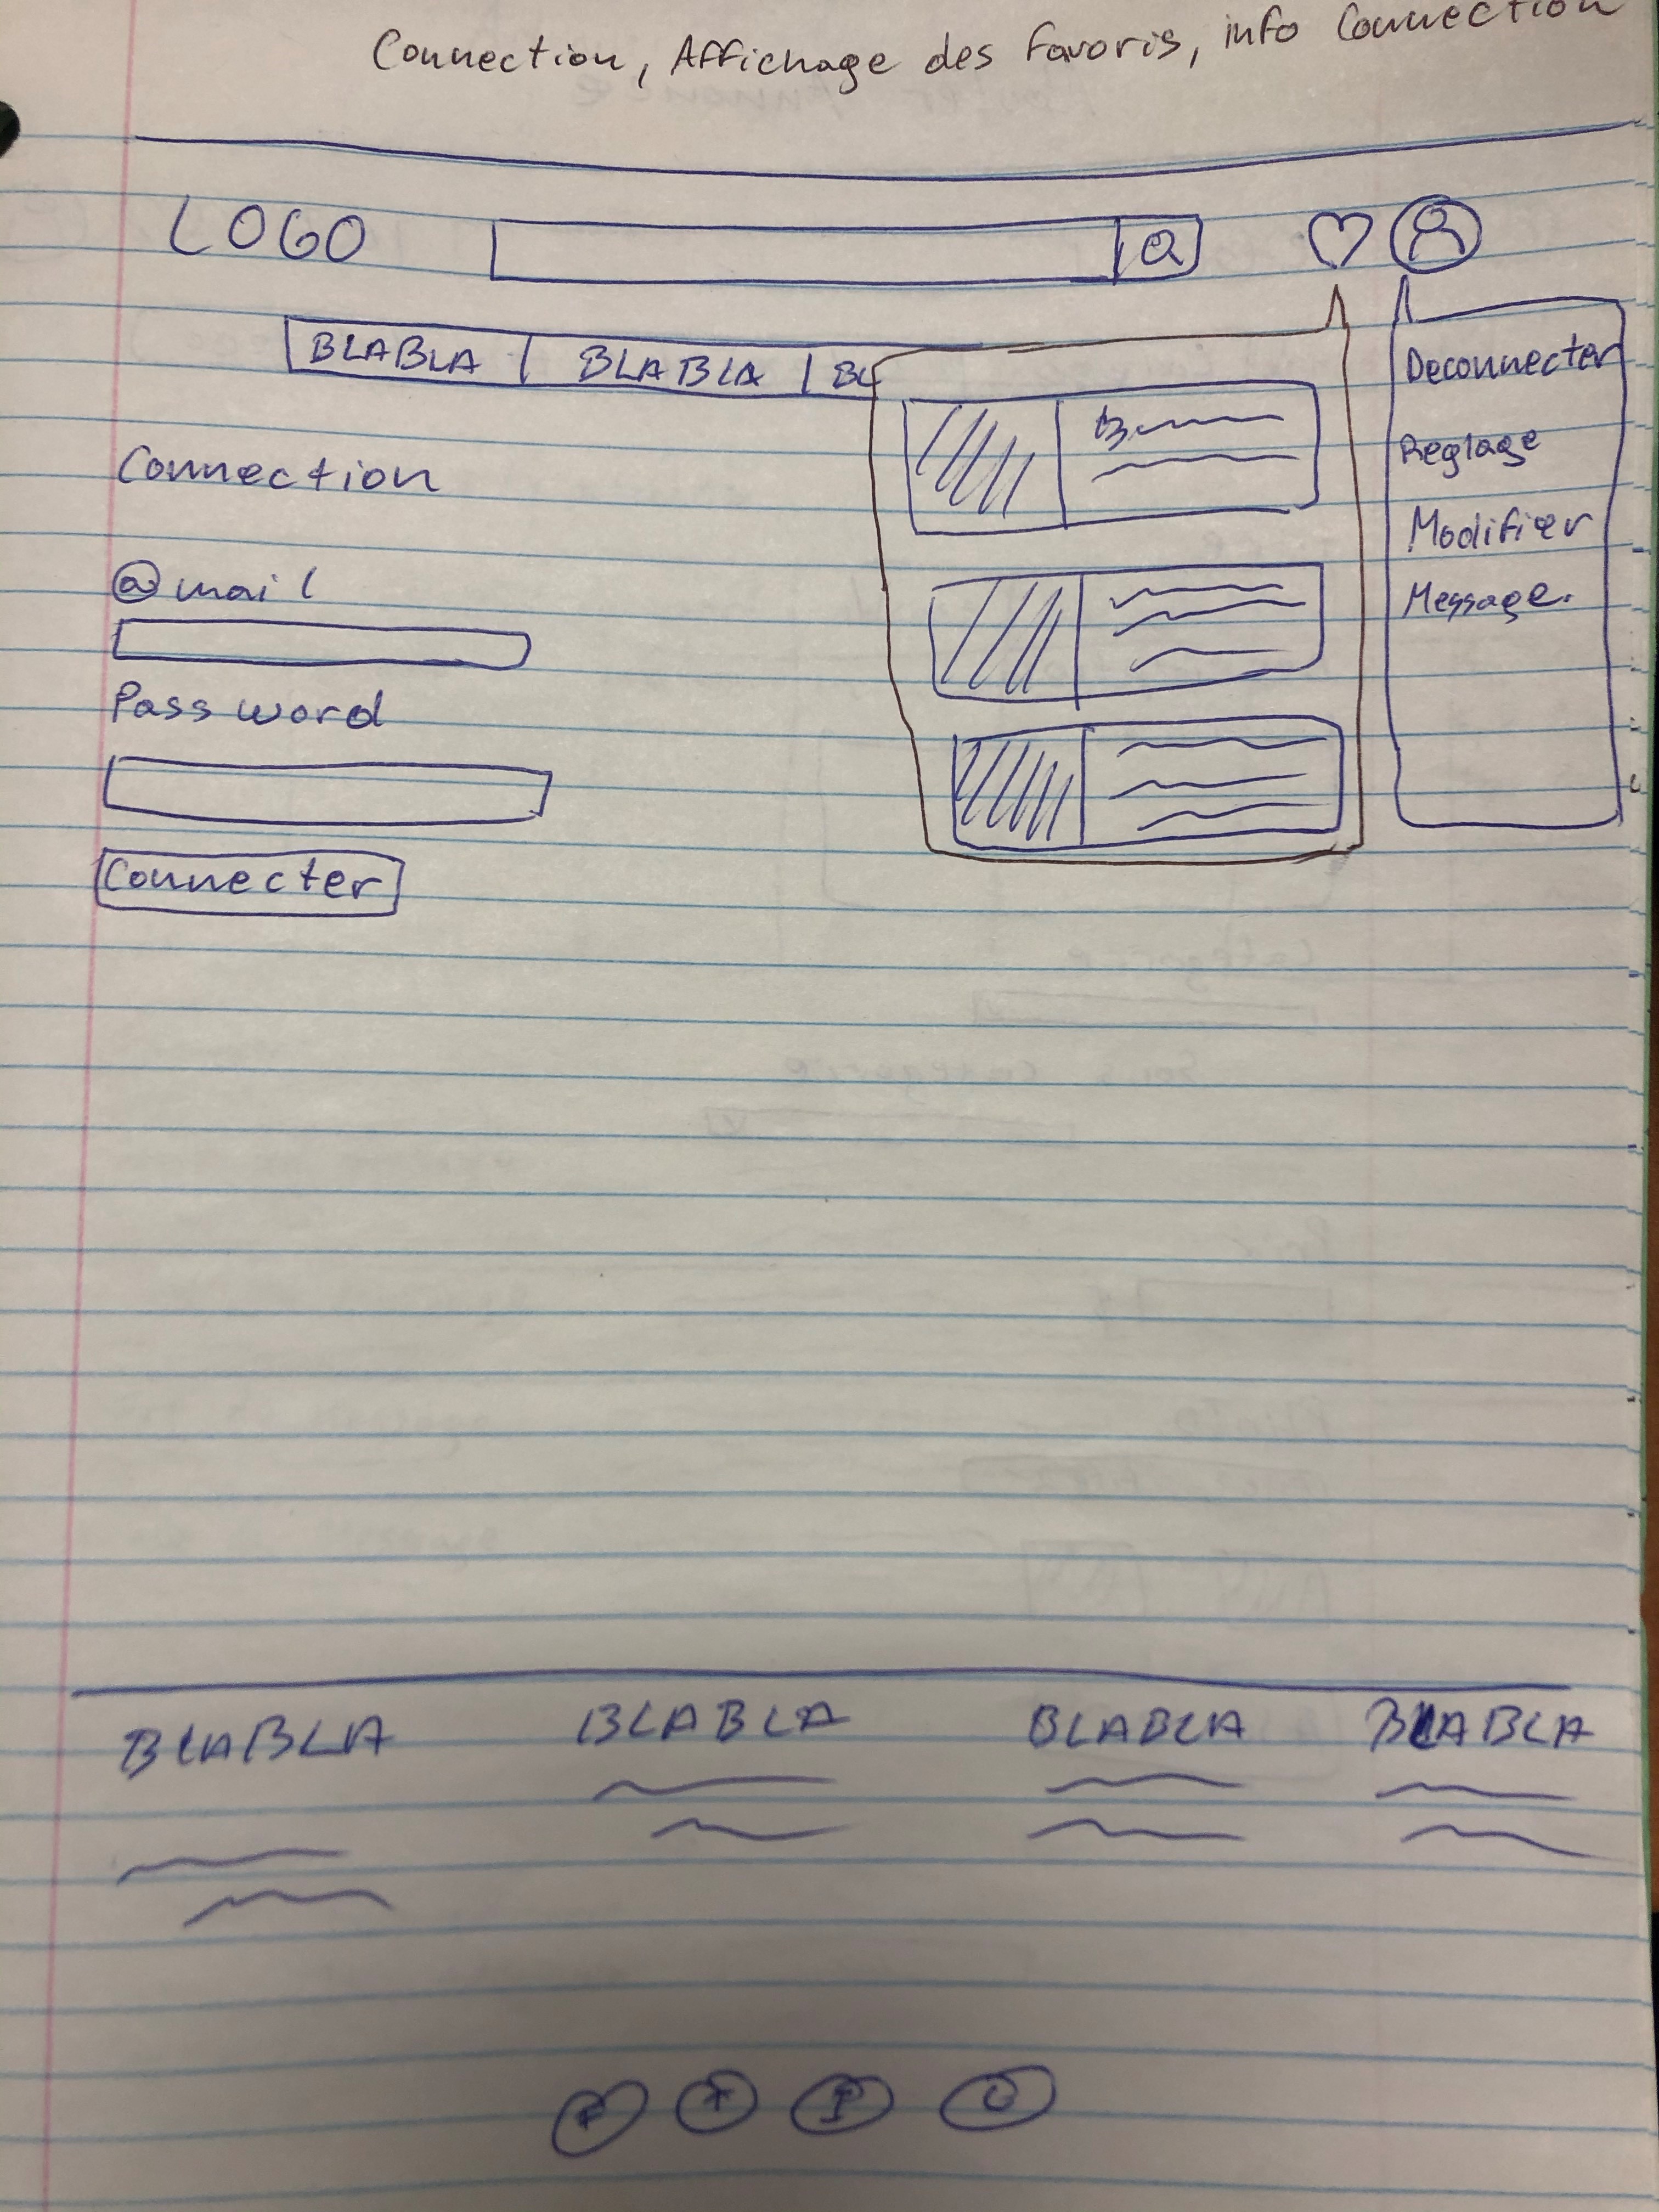 Connection, Affichage des favoris, info Connection
LOGO
BLABLA BLABLA BL
Deconnecter
Reglage
Modifier
Message.
Connection
@mail
Password
Connecter
BLABLA BLABLA BLABLA BLABLA